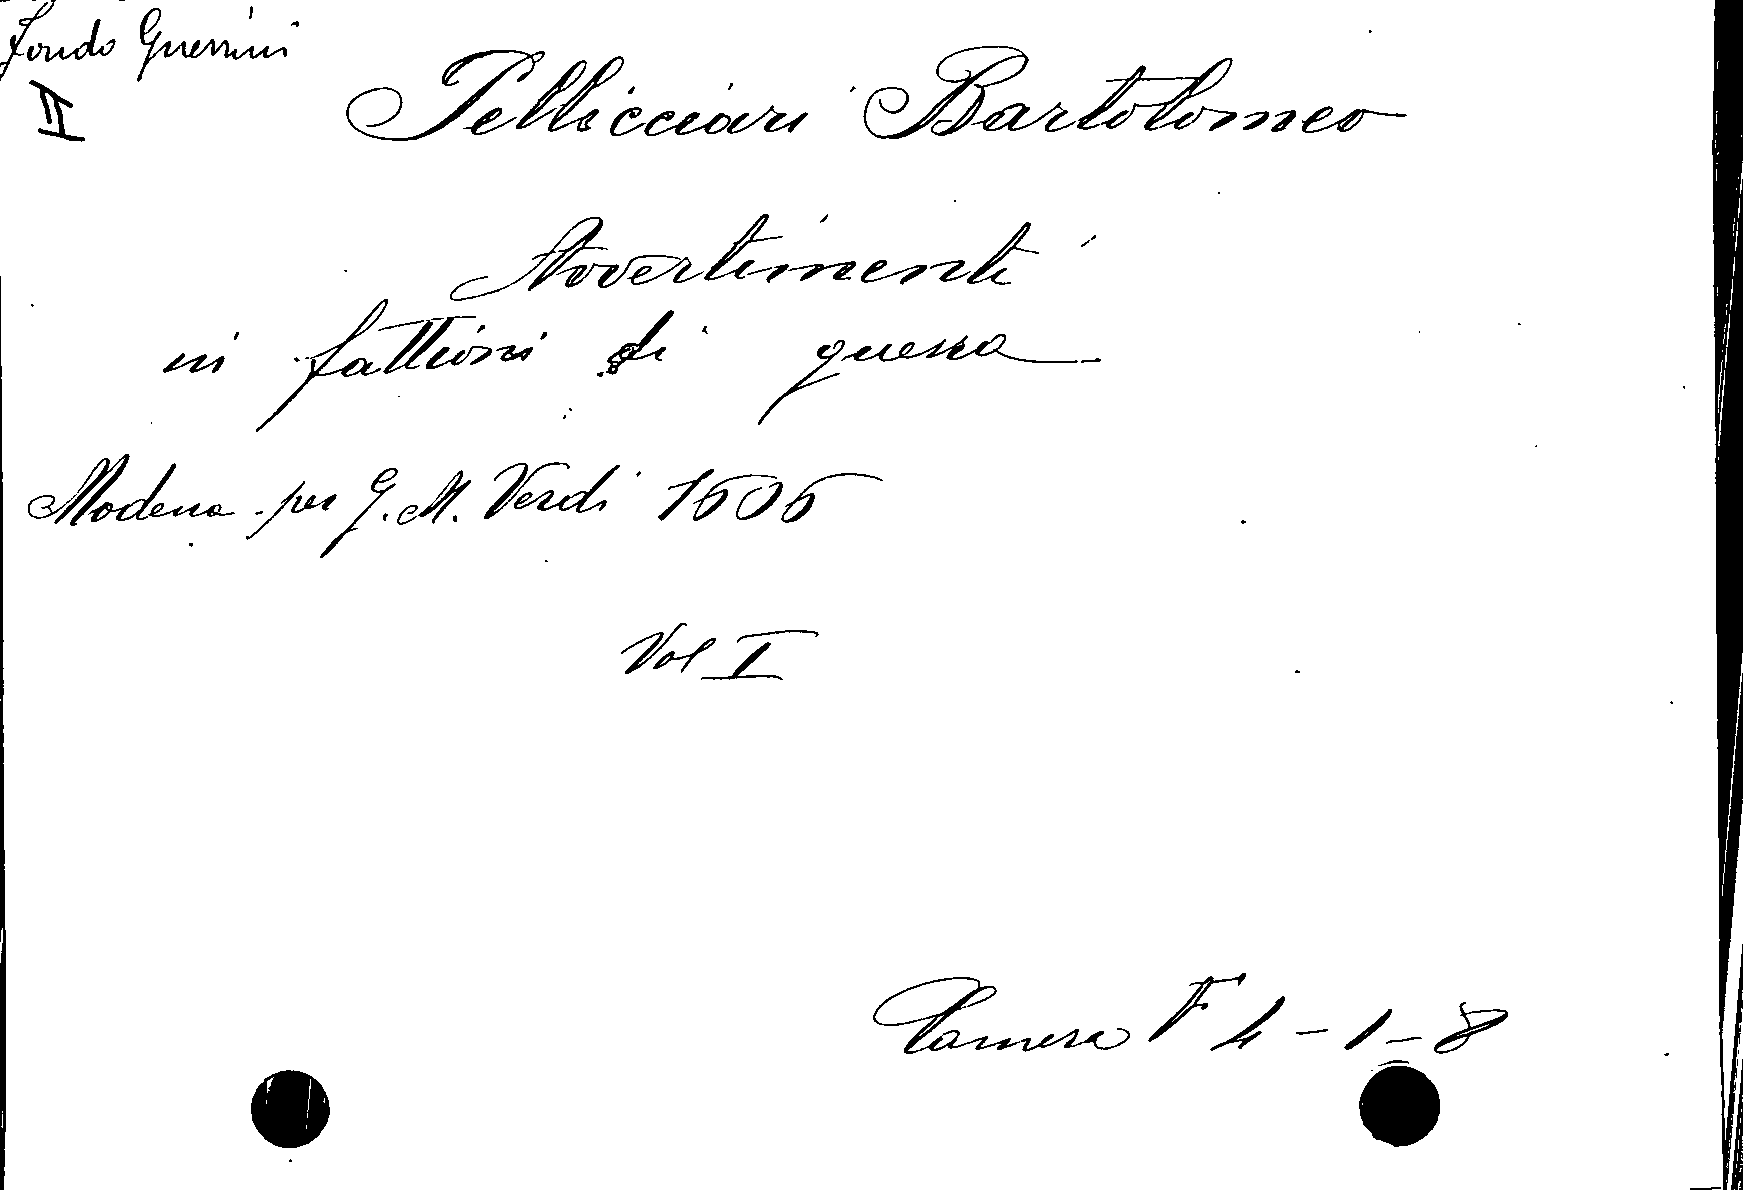 Fondo Guerrini
II
Pellicciari Bartolomeo
Avvertimenti
in fattioni di guerra
Modena per G. M. Verdi 1606
Vol I
Camera F 4 - 1 - 8